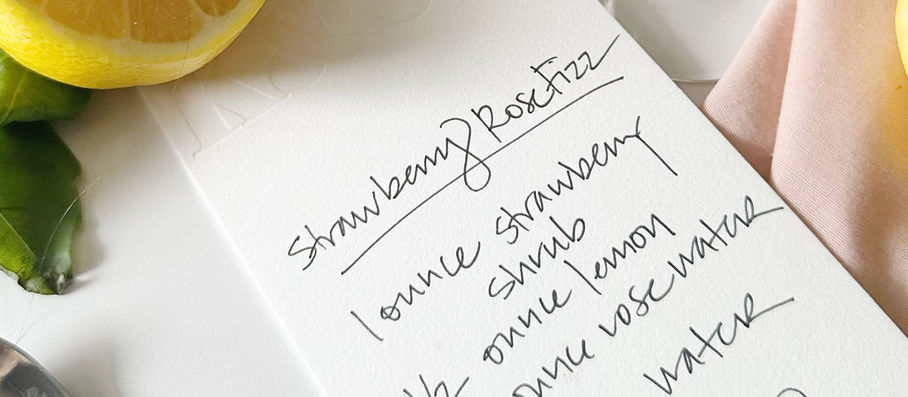 Strawberry Rose Fizz
1 ounce strawberry
shrub
1/2 ounce lemon
ounce rose water
water